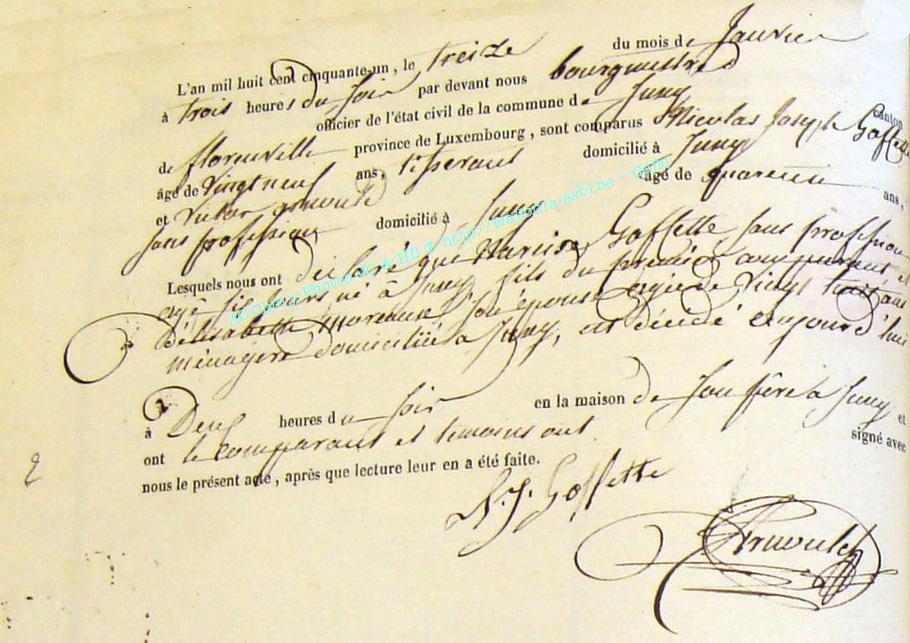 L'an mil huit cent cinquante-un, le treize du mois de Janvier
à trois heures du soir par devant nous bourgmestre
officier de l'état civil de la commune de Izel canton
de florenville province de Luxembourg, sont comparus Nicolas Joseph Goffette
âgé de vingt neuf ans, tisserant domicilié à
et Victor arnould âgé de quarente ans,
sans profession domicilié à
Lesquels nous ont déclaré que Narcisse Goffette sans profession
agé six jours né à fils du premier comparant, et
d'élisabette Moreaux son épouse agée de vingt huit ans
ménagère domiciliée a est décédé aujourd'hui
à Deux heures du soir en la maison de son père a et
ont le comparant et temoins ont signé avec
nous le présent acte, après que lecture leur en a été faite.
N. J. Goffette
Arnould
http://wallonia-asbl.be
2